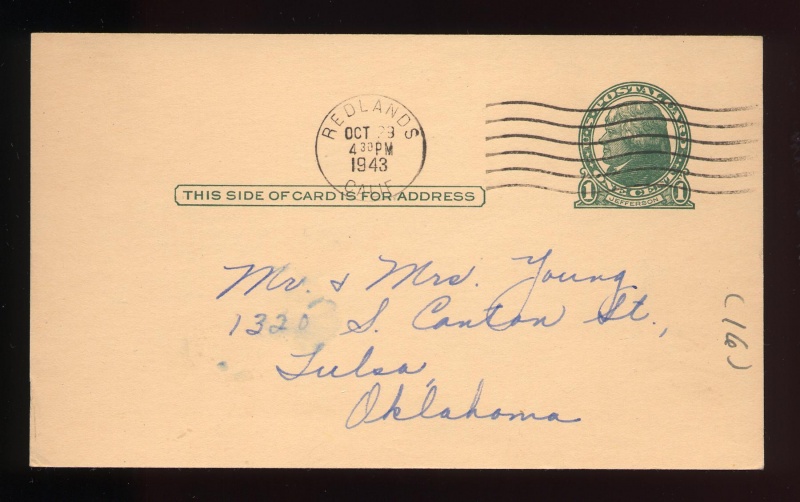 REDLANDS
OCT 28
4 30 PM
1943
CALIF.
U.S. POSTAL CARD
ONE CENT
1 1
JEFFERSON
THIS SIDE OF CARD IS FOR ADDRESS
Mr. & Mrs. Young
1320 S. Canton St.,
Tulsa,
Oklahoma
(16)